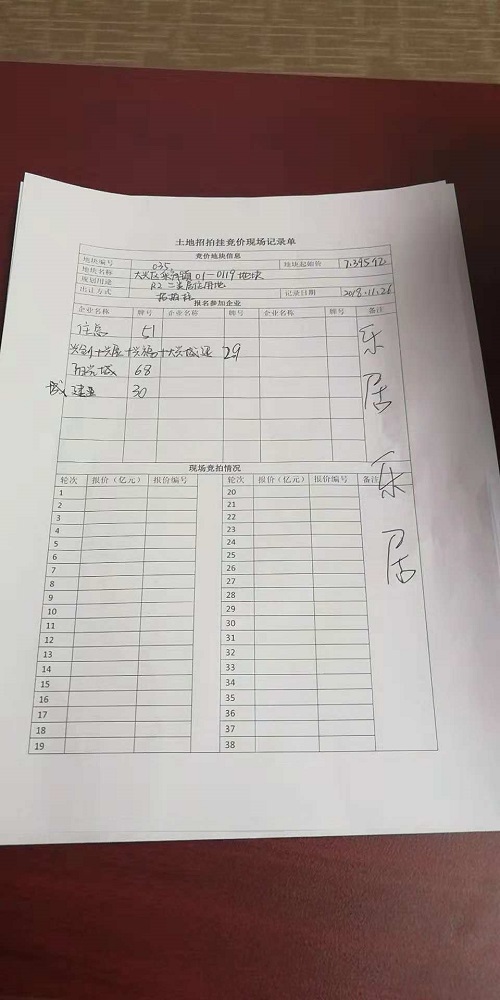 土地招拍挂竞价现场记录单
竞价地块信息
地块编号 035 地块起始价 7.395亿
地块名称 大兴区采育镇01-0119地块
规划用途 R2 二类居住用地
出让方式 招拍挂 记录日期 2018.11.26
报名参加企业
企业名称 牌号 企业名称 牌号 企业名称 牌号 备注
住总 51
兴创+兴展+兴福+大兴城建 29
阳光城 68
城建 30
乐居乐居
现场竞拍情况
轮次 报价（亿元） 报价编号 轮次 报价（亿元） 报价编号 备注
1 20
2 21
3 22
4 23
5 24
6 25
7 26
8 27
9 28
10 29
11 30
12 31
13 32
14 33
15 34
16 35
17 36
18 37
19 38